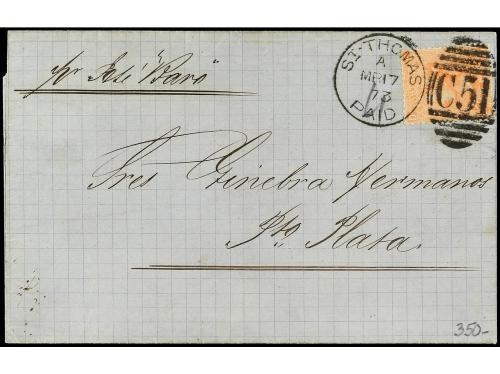 pr José "Baró"
ST-THOMAS
A
MR 17
73
PAID
C51
Sres Ginebra Hermanos
Pto Plata.
350-